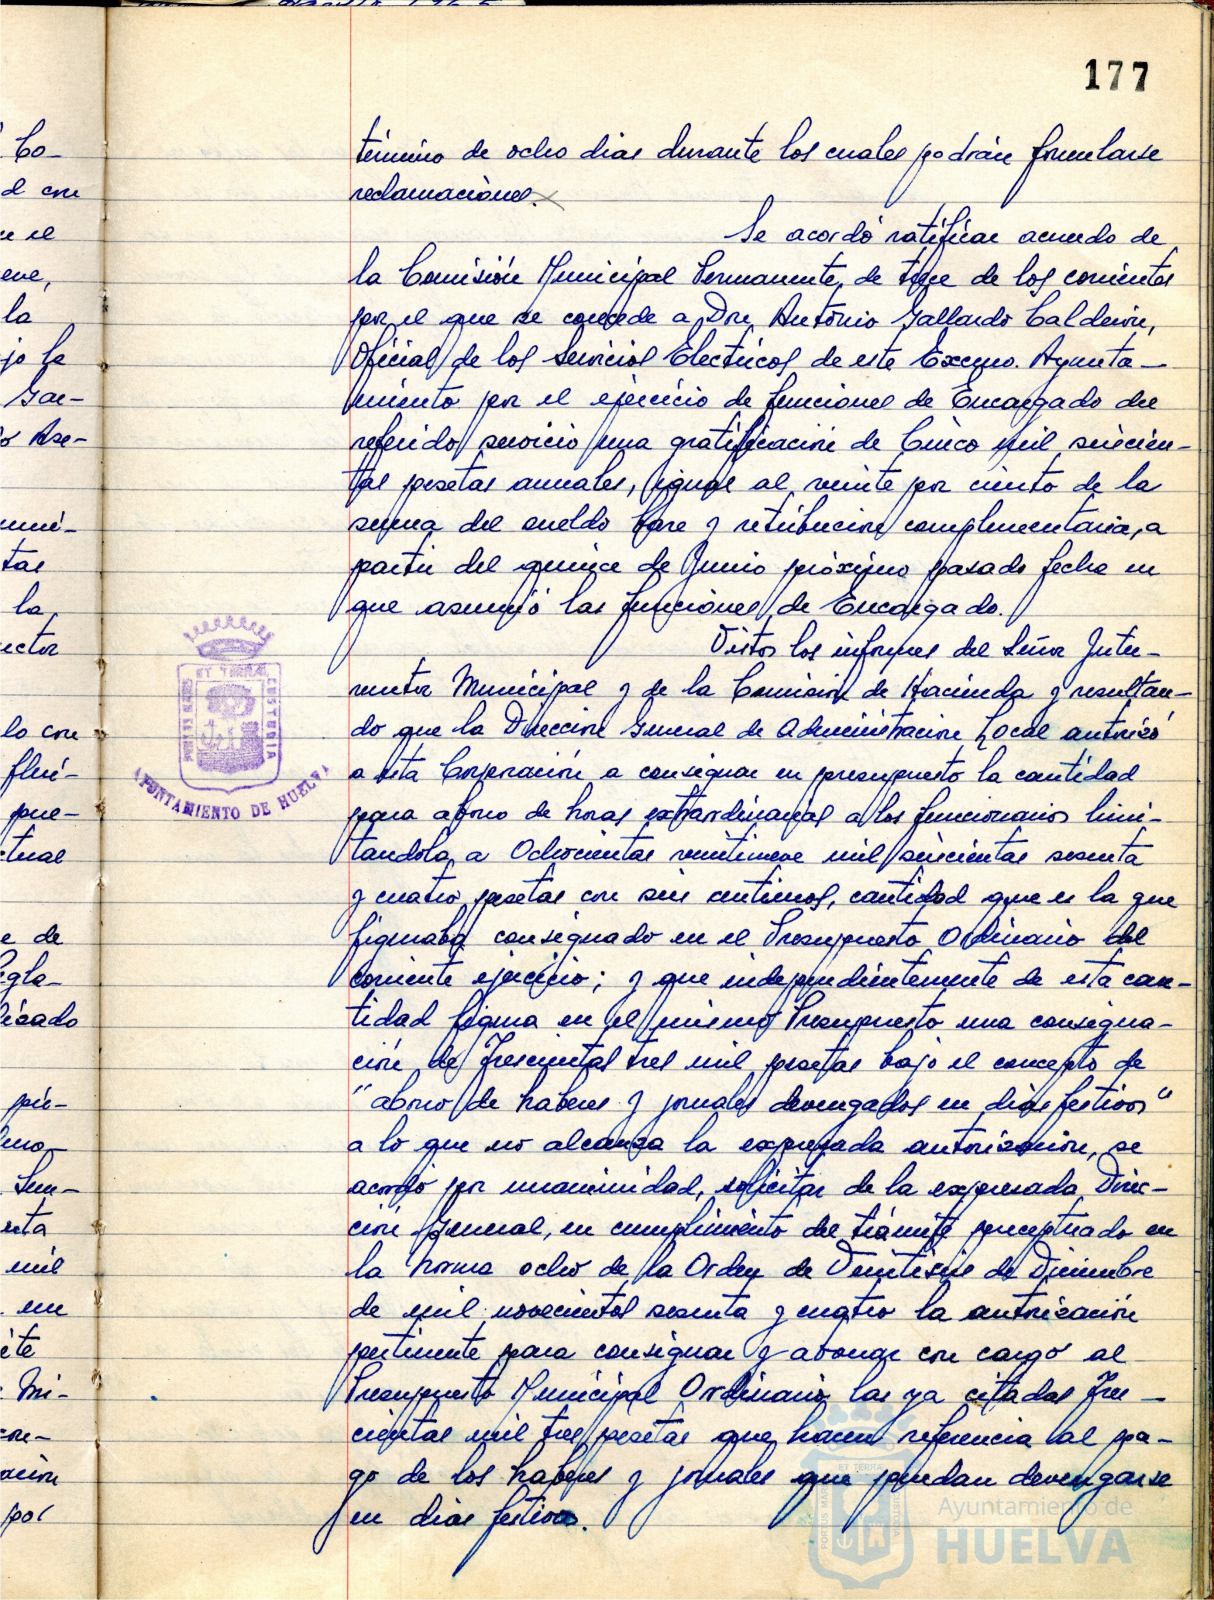 177
término de ocho dias durante los cuales podrán formularse
reclamaciones.
Se acordó ratificar acuerdo de
la Comisión Municipal Permanente, de trece de los corrientes
por el que se concede a Don Antonio Gallardo Calderón,
Oficial de los Servicios Electricos de este Excmo. Ayunta-
miento por el ejercicio de funciones de Encargado del
referido servicio una gratificación de Cinco mil seiscien-
tas pesetas anuales, igual al veinte por ciento de la
suma del sueldo base y retribucion complementaria, a
partir del quince de Junio próximo pasado fecha en
que asumió las funciones de Encargado.
Vistos los informes del Señor Inter-
ventor Municipal y de la Comisión de Hacienda y resultan-
do que la Dirección General de Administracion Local autorizó
a esta Corporación a consignar en presupuesto la cantidad
para abono de horas extraordinarias a los funcionarios limi-
tandola a Ochocientas veintinueve mil seiscientas sesenta
y cuatro pesetas con seis centimos, cantidad que es la que
figuraba consignado en el Presupuesto Ordinario del
corriente ejercicio; y que independientemente de esta can-
tidad figura en el mismo Presupuesto una consigna-
ción de Trescientas tres mil pesetas bajo el concepto de
"abono de haberes y jornales devengados en dias festivos"
a lo que no alcanza la expresada autorización, se
acordó por unanimidad, solicitar de la expresada Direc-
ción General, en cumplimiento del trámite preceptuado en
la norma ocho de la Orden de Veintiseis de Diciembre
de mil novecientos sesenta y cuatro la autorización
pertinente para consignar y abonar con cargo al
Presupuesto Municipal Ordinario las ya citadas Tres-
cientas mil tres pesetas que hacen referencia al pa-
go de los haberes y jornales que puedan devengarse
en dias festivos.
ET TERRAE
CUSTODIA
AYUNTAMIENTO DE HUELVA
Ayuntamiento de
HUELVA